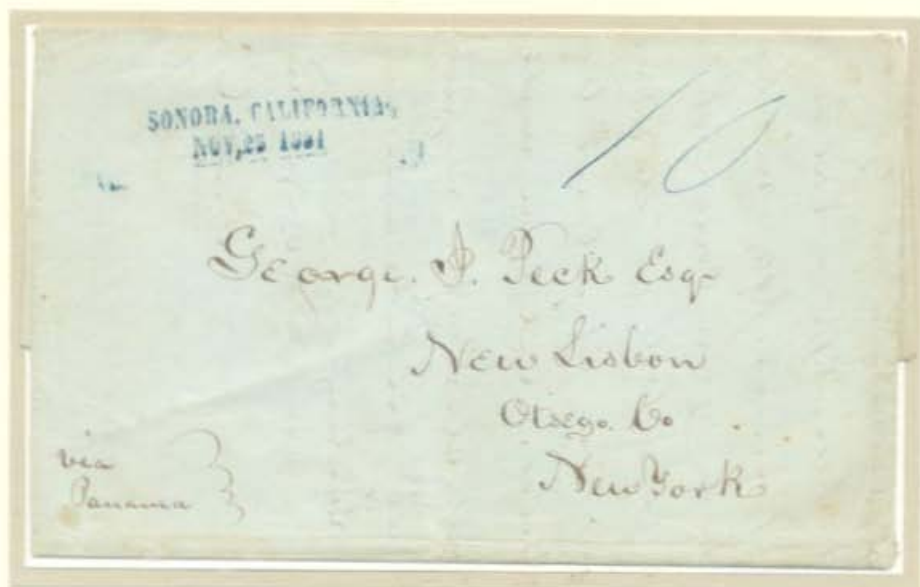 SONORA, CALIFORNIA,
NOV, 25 1851
10
George. S. Peck Esqr
New Lisbon
Otsego. Co
New York
via
Panama